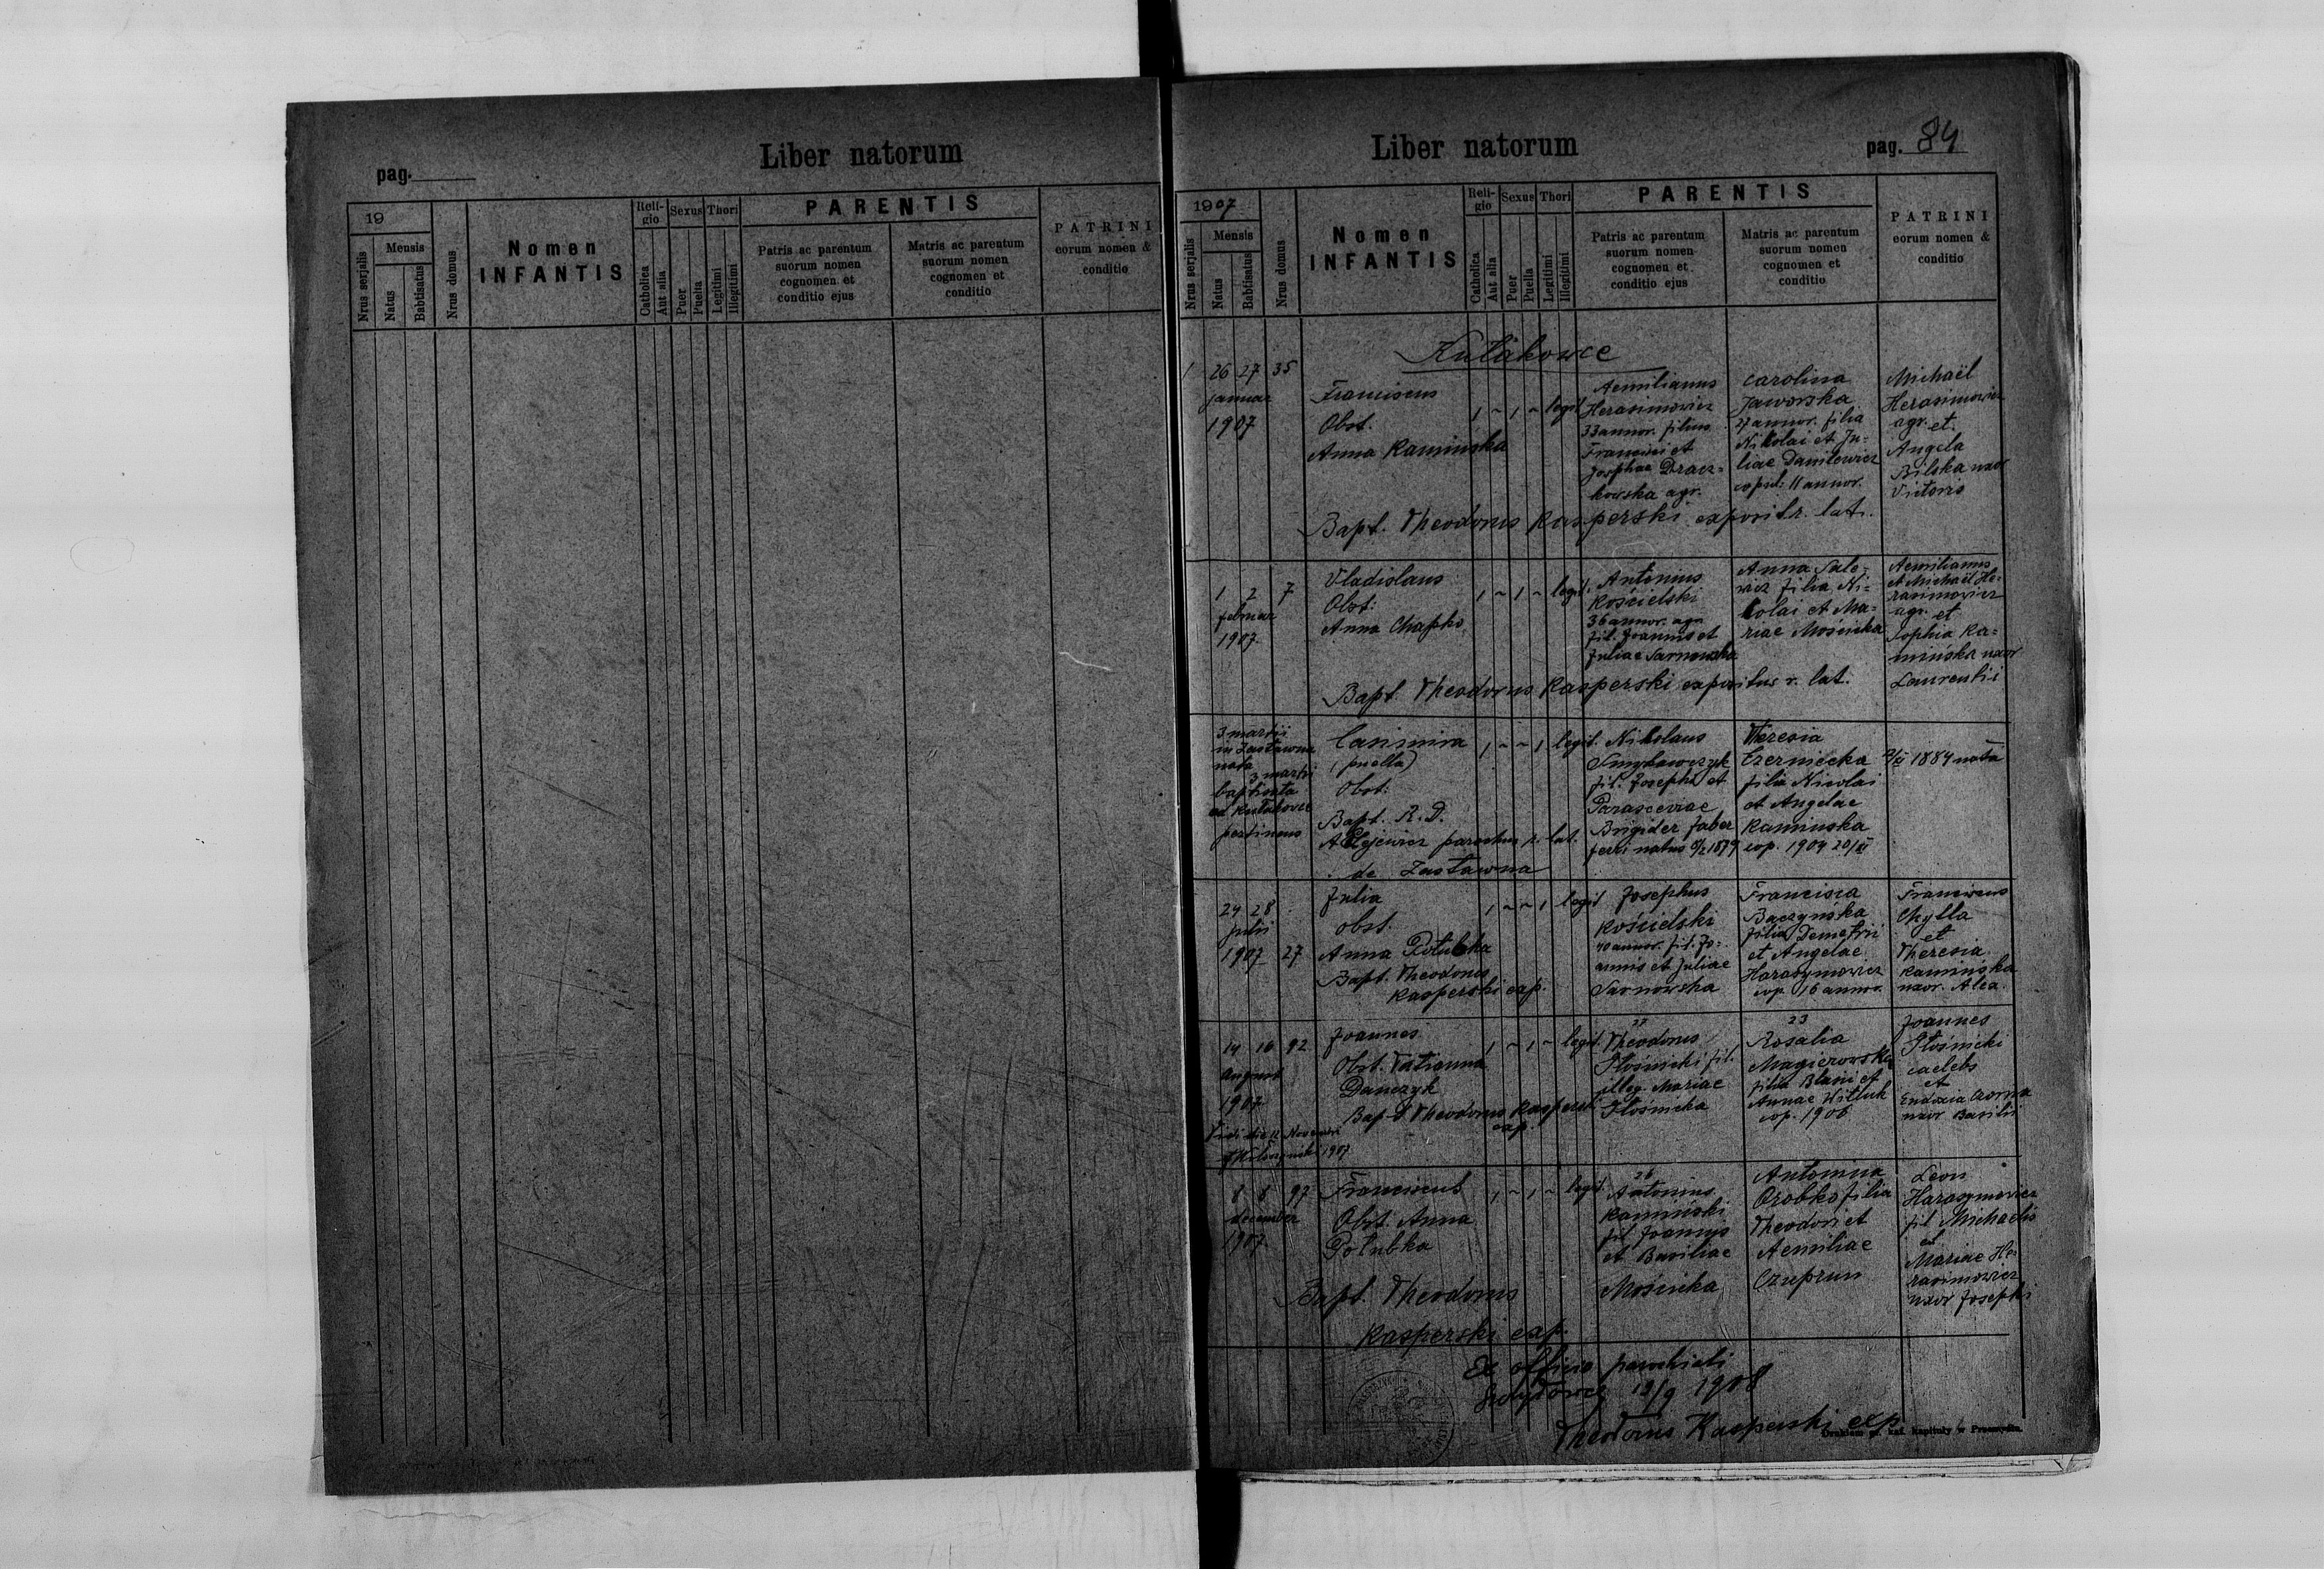 Liber natorum
pag.
19
Nrus serjalis
Mensis
Natus
Babtisatus
Nrus domus
Nomen
INFANTIS
Reli-
gio
Catholica
Aut alia
Sexus
Puer
Puella
Thori
Legitimi
Illegitimi
PARENTIS
Patris ac parentum
suorum nomen
cognomen et
conditio ejus
Matris ac parentum
suorum nomen
cognomen et
conditio
PATRINI
eorum nomen &
conditio
Liber natorum
pag. 84
1907
Nrus serjalis
Mensis
Natus
Babtisatus
Nrus domus
Nomen
INFANTIS
Reli-
gio
Catholica
Aut alia
Sexus
Puer
Puella
Thori
Legitimi
Illegitimi
PARENTIS
Patris ac parentum
suorum nomen
cognomen et
conditio ejus
Matris ac parentum
suorum nomen
cognomen et
conditio
PATRINI
eorum nomen &
conditio
Kułakowce
1 26 27 35
januar
1907
Franciscus
Obst.
Anna Kaminska
1 ~ 1 ~ legit
Aemilianus
Herasimowicz
33 annor. filius
Francisci et
Josephae Dracz=
kowska agr.
Carolina
Jaworska
27 annor. filia
Nikolai et Ju=
liae Danilewicz
copul: 11 annor.
Michaël
Herasimowicz
agr. et
Angela
Bilska uxor
Victoris
Bapt. Theodorus Kasperski exposit r. lat.
1 2 7
februar
1907.
Vladislaus
Obst:
Anna Chapko
1 ~ 1 ~ legit.
Antonius
Kościelski
36 annor. agr.
fil. Joannis et
Juliae Sarnowska
Anna Sale-
wicz filia Ni-
kolai et Ma=
riae Mościcka
Aemilianus
et Michaël He-
rasimowicz
agr. et
Sophia Ka=
mińska uxor
Laurentii
Bapt. Theodorus Kasperski expositus r. lat.
3 martii
in Zastawna
nata
3 martii
baptisata
ad Kułakowce
pertinens
Casimira
(puella)
Obst:
Bapt. R. D.
parochus r. lat.
de Zastawna
1 ~ ~ 1 legit.
Nikolaus
fil. Josephi et
Parascevae
Brigider faber
ferri natus 1879
Theresia
Czerniecka
filia Nicolai
et Angelae
Kaminska
cop. 1904 20/XI
1884 nata
24 28
julii
1907 27
Julia
obst.
Anna Połubka
Bapt. Theodorus
Kasperski exp.
1 ~ ~ 1 legit
Josephus
Kościelski
40 annor. fil. Jo=
annis et Juliae
Sarnowska
Francisca
Baczyńska
filia Demetrii
et Angelae
Harasymowicz
cop. 16 annor.
Franciscus
Chytla
et
Theresia
Kamińska
uxor. Alex.
14 16 92
August
1907
Joannes
Obst. Tatianna
Danczyk
Bapt Theodorus Kasperski
exp.
1 ~ 1 ~ legit.
27
Theodorus
Słośnicki fil.
illeg. Mariae
Słośnicka
23
Rosalia
Magierowska
filia Blasii et
Annae Witluk
cop. 1906
Joannes
Słośnicki
caelebs
et
Eudoxia
uxor Basilii
Vidi die 12 Novembri
1907
8 8 97
december
1907.
Franciscus
Obst. Anna
Połubka
Bapt. Theodorus
Kasperski exp.
1 ~ 1 ~ legit.
26
Antonius
Kamiński
fil Joannis
et Basiliae
Mościcka
Antonina
Orobko filia
Theodori et
Aemiliae
Czuprun
Leon
Harasymowicz
fil Michaelis
et
Mariae He-
rasimowicz
uxor Josephi
Ex officio parochiali
1908
Theodorus Kasperski exp